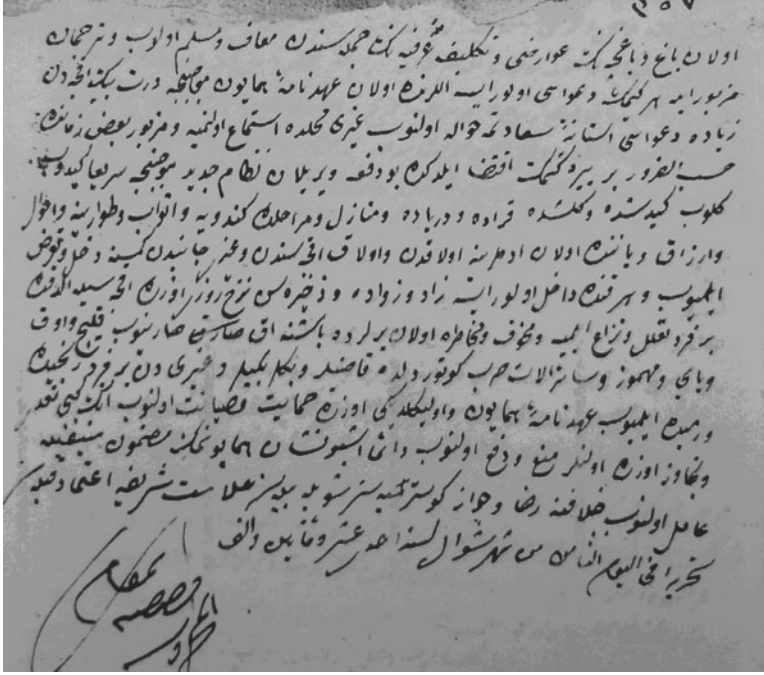 ٣٥٧
اولان باغ و باغچه نك عوارضی و تكالیف عرفیه نك جمله سندن معاف و مسلم اولوب و ترجمان
مزبور ایله هر كیمك دعواسی اولور ایسه اللرنده اولان عهدنامهٔ همایون موجبنجه درت بیك اقچه دن
زیاده دعواسی استانهٔ سعادتمه حواله اولنوب غیری محلده استماع اولنمیه و مزبور بعض زمانده
حسب الضرور بر یره كتمك اقتضا ایلدكده بو دفعه ویریلان نظام جدید موجبنجه سریعا كیدوب
كلوب كیدشده و كلشده قراده و دریاده و منازل و مراحلده كندویه و اثواب و طوارینه و احمال
وارزاق و یاننده اولان ادملرینه اولاقدن و اولاق اقچه سندن و غیر جانبدن كمسنه دخل و تعرض
ایلمیوب و هر قنده داخل اولور ایسه زاد و زواده و ذخیره سن نرخ روزی اوزره اقچه سیله الدقده
بر فرد تعلل و نزاع ایلمیه و مخوف و مخاطره اولان یرلرده باشنه اق صارق صارنوب قلیج و اوق
و یای و مهموز و سائر الات حرب كوتوردكده قاضیلر و بكلربكیلر و غیری دن بر فرد رنجیده
و رمیده ایلمیوب عهدنامهٔ همایون و اولیكلدیكی اوزره حمایت و صیانت اولنوب انك كبی تعدی
و تجاوز اوزره اولنلر منع و دفع اولنوب دائما اشبو نشان همایونمك مضمون منیفیله
عامل اولنوب خلافنه رضا و جواز كوسترلمیه شویله بیله سز علامت شریفه اعتماد قیله سز
تحریرا فی الیوم الثامن من شهر شوال لسنه احدی عشر و مأتین و الف
بمقام
المحروسه